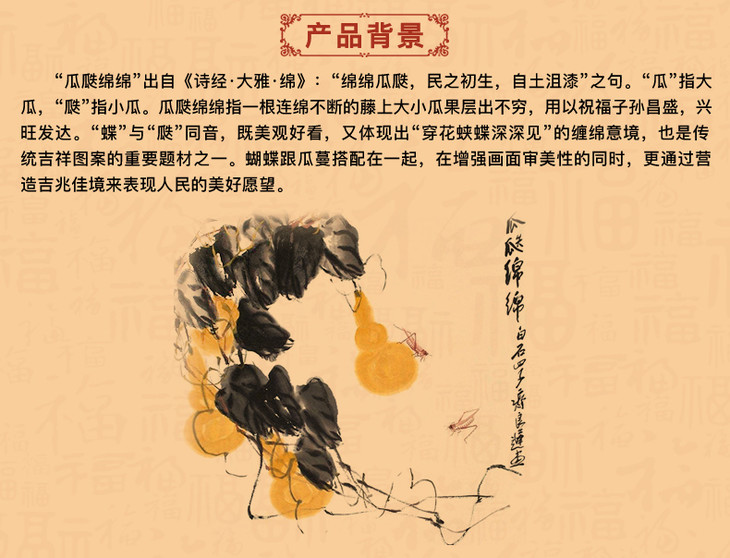 产品背景
“瓜瓞绵绵”出自《诗经·大雅·绵》：“绵绵瓜瓞，民之初生，自土沮漆”之句。“瓜”指大
瓜，“瓞”指小瓜。瓜瓞绵绵指一根连绵不断的藤上大小瓜果层出不穷，用以祝福子孙昌盛，兴
旺发达。“蝶”与“瓞”同音，既美观好看，又体现出“穿花蛱蝶深深见”的缠绵意境，也是传
统吉祥图案的重要题材之一。蝴蝶跟瓜蔓搭配在一起，在增强画面审美性的同时，更通过营
造吉兆佳境来表现人民的美好愿望。
瓜瓞绵绵 白石四子齐良迟画